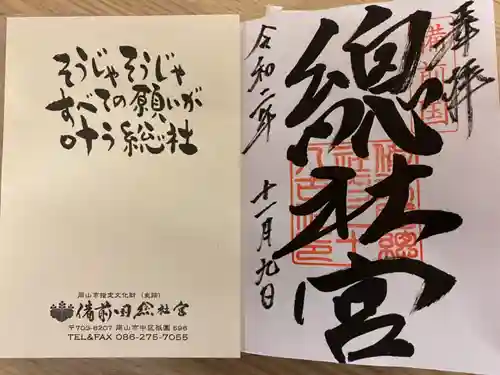 そうじゃそうじゃ
すべての願いが
叶う総社
岡山市指定文化財(史跡)
備前国総社宮
〒703-8207 岡山市中区祇園596
TEL&FAX 086-275-7055
奉拝
備前国
總社宮
令和二年
十一月九日